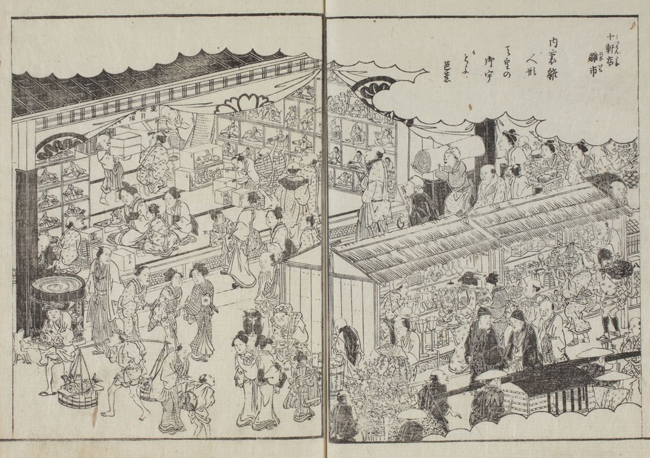 十軒店
雛市
内裏雛
人形
天皇の
御宇
かとよ
芭蕉